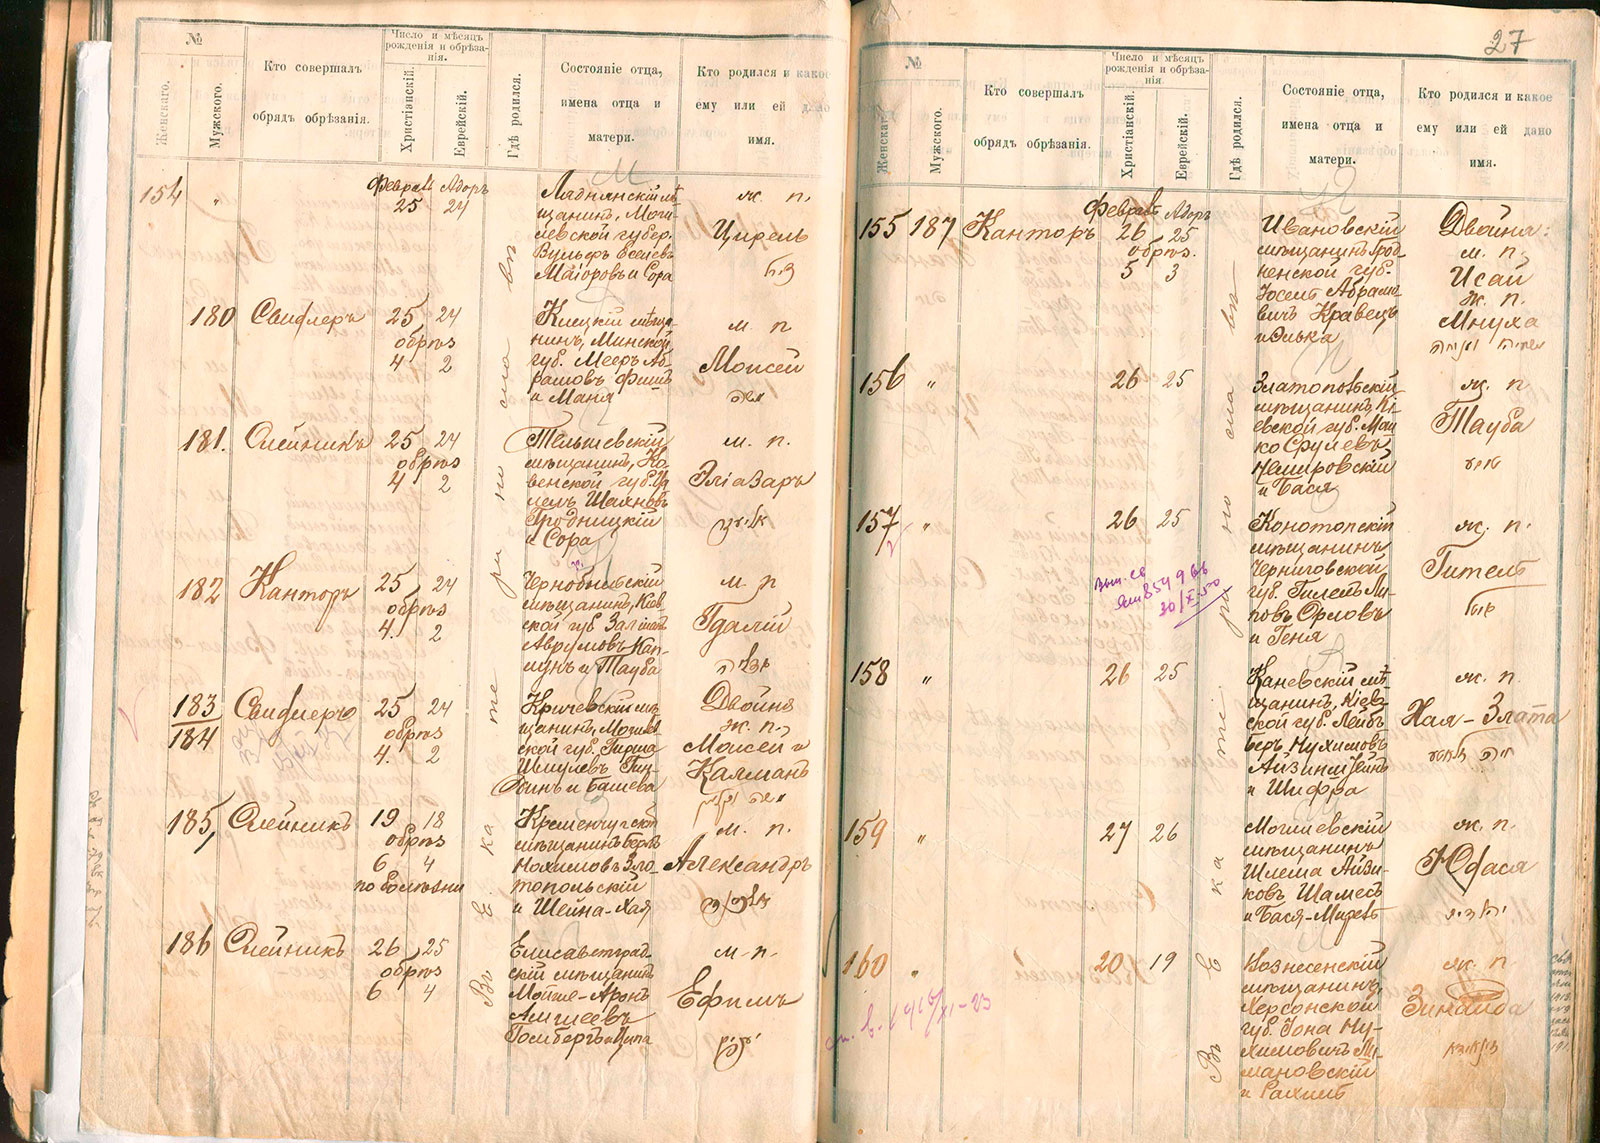 №
Женскаго.
Мужского.
Кто совершалъ
обрядъ обрѣзанія.
Число и мѣсяцъ
рожденія и обрѣза-
нія.
Христіанскій.
Еврейскій.
Гдѣ родился.
Состояніе отца,
имена отца и
матери.
Кто родился и какое
ему или ей дано
имя.
Въ Екатеринославѣ
154 "
Февраль Адаръ
25 24
Ляднянскій мѣ-
щанинъ, Моги-
левской губер.
Вульфъ
Маіоровъ и Сора
ж. п.
Цирель
180 Свифлеръ 25 24
обрѣз
4 2
Клецкій мѣща-
нинъ, Минской
губ. Мееръ Аб-
рамовъ Фишъ
и Маня
м. п
Моисей
משה
181. Олейникъ 25 24
обрѣз
4 2
Тельшевскій
мѣщанинъ, Ко-
венской губ.
Шахновъ
Гродницкій
и Сора
м. п.
Эліазаръ
182 Канторъ 25 24
обрѣз
4. 2
Чернобыльскій
мѣщанинъ, Кіев-
ской губ.
Аврумовъ Кап-
лунъ и Тауба
м. п
Гдалій
גדליה
183
184
Свифлеръ 25 24
обрѣз
4. 2
Кричевскій мѣ-
щанинъ, Могилев-
ской губ. Гирша
Шмулевъ
и Башева
Двойня
ж. п.
Моисей и
Калманъ
משה וקלמן
185, Олейникъ 19 18
обрѣз
6 4
по болѣзни
Кременчугскій
мѣщанинъ Берль
Нохимовъ Зла-
топольскій
и Шейна-Хая
м. п.
Александръ
186 Олейникъ 26 25
обрѣз
6 4
Елисаветград-
скій мѣщанинъ
Мойше-Аронъ
м. п.
Ефимъ
27
№
Женскаго.
Мужского.
Кто совершалъ
обрядъ обрѣзанія.
Число и мѣсяцъ
рожденія и обрѣза-
нія
Христіанскій.
Еврейскій.
Гдѣ родился.
Состояніе отца,
имена отца и
матери.
Кто родился и какое
ему или ей дано
имя.
Въ Екатеринославѣ
155 187 Канторъ
Февраль Адаръ
26 25
обрѣз.
5 3
Ивановскій
мѣщанинъ Грод-
ненской губ.
Іосель Абрамо-
вичъ Кравецъ
и Элька
Двойня:
м. п.
Исай
ж. п.
Мнуха
156 " 26 25
Златопольскій
мѣщанинъ, Кі-
евской губ. Мош-
ко Срулевъ
Немировскій
и Бася
ж. п
Тауба
157 " 26 25
Конотопскій
мѣщанинъ
Черниговской
губ. Гилель Ли-
повъ Орловъ
и Геня
ж. п.
Гитель
30/X-50
158 " 26 25
Каневскій мѣ-
щанинъ, Кіев-
ской губ. Лейбъ
Беръ Нухимовъ
и Шифра
ж. п.
Хая-Злата
חיה זלאטע
159 " 27 26
Могилевскій
мѣщанинъ
Шлема Айзи-
ковъ Шамесъ
и Бася-Мирель
ж. п.
Юдася
160 " 20 19
Вознесенскій
мѣщанинъ,
Херсонской
губ. Іона Ну-
химовичъ Ли-
мановскій
и Рахиль
ж. п
Зинаида